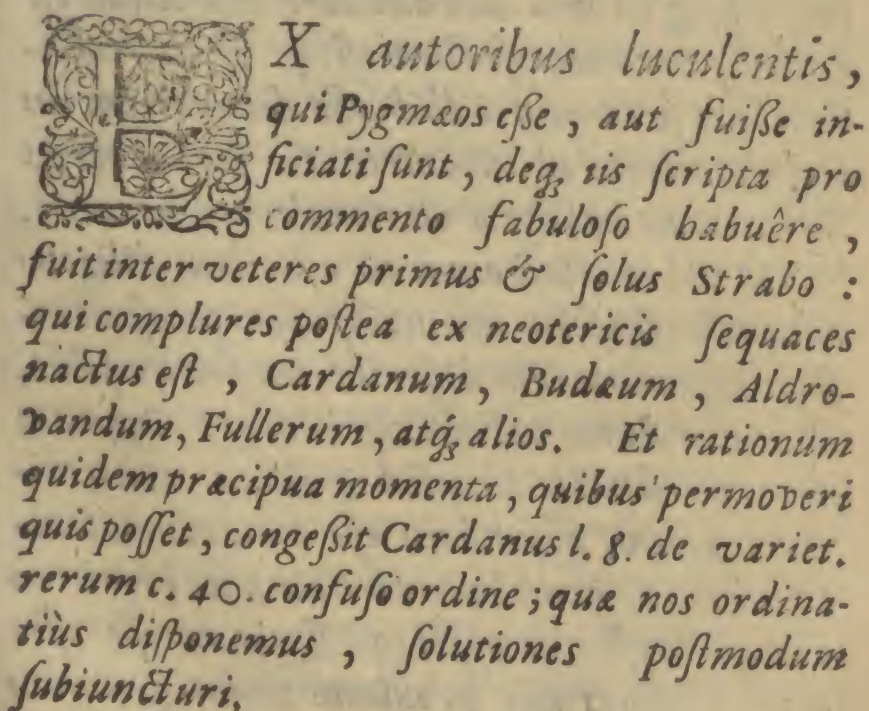 EX autoribus luculentis,
qui Pygmæos eſſe, aut fuiſſe in-
ficiati ſunt, deq́ue iis ſcripta pro
commento fabuloſo habuêre,
fuit inter veteres primus & ſolus Strabo:
qui complures poſtea ex neotericis ſequaces
nactus eſt, Cardanum, Budæum, Aldro-
vandum, Fullerum, atq́ꝫ alios. Et rationum
quidem præcipua momenta, quibus permoveri
quis poſſet, congeſſit Cardanus l. 8. de variet.
rerum c. 40. confuſo ordine; quæ nos ordina-
tiùs diſponemus, ſolutiones poſtmodum
ſubiuncturi.